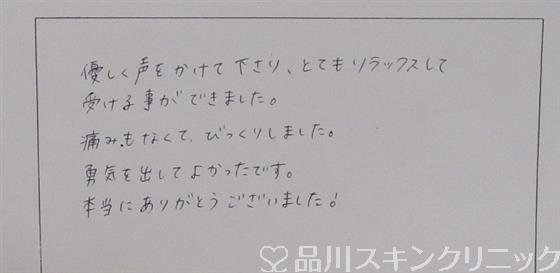 優しく声をかけて下さり、とてもリラックスして
受ける事ができました。
痛みもなくて、びっくりしました。
勇気を出してよかったです。
本当にありがとうございました!
品川スキンクリニック